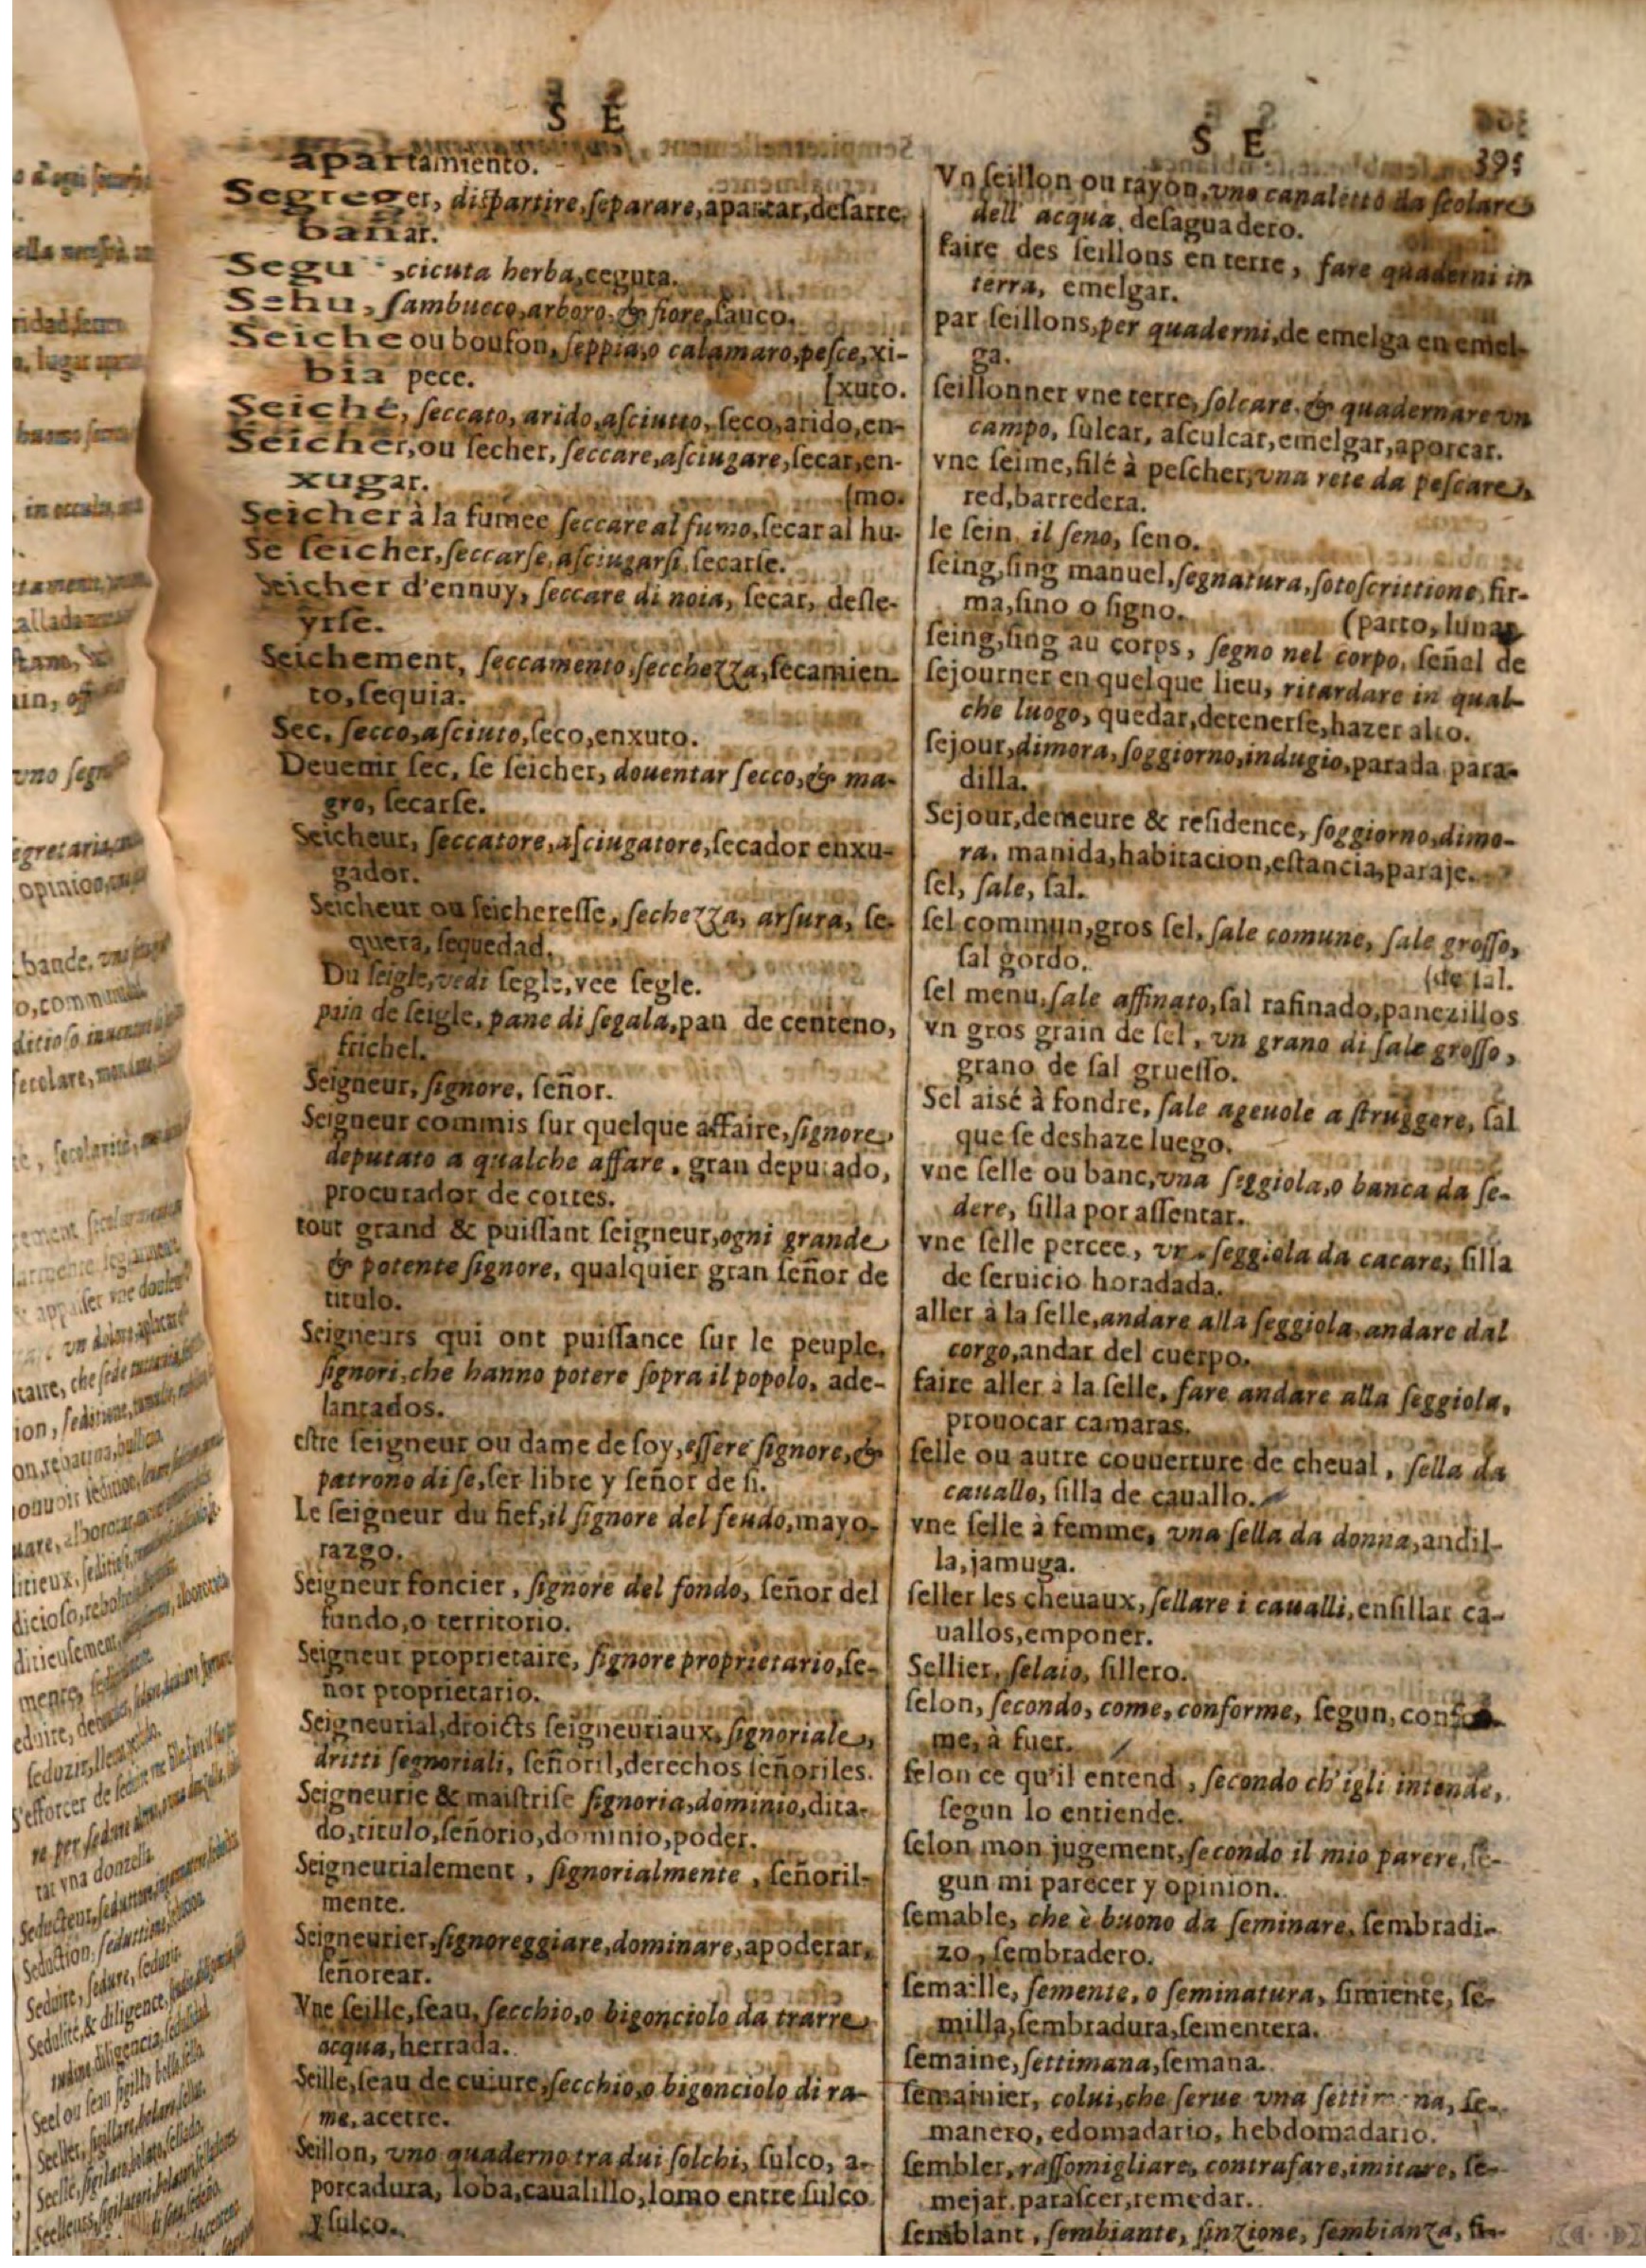 S E
apartamiento.
Segreger, dispartire, ſeparare, apartar, deſarre-
bañar.
Segu , cicuta herba, ceguta.
Sehu, ſambuco, arboro, & fiore, ſauco.
Seiche ou boufon, ſeppia, o calamaro, peſce, xi-
bia pece. [xuto.
Seiché, ſeccato, arido, aſciutto, ſeco, arido, en-
Seicher, ou ſecher, ſeccare, aſciugare, ſecar, en-
xugar. (mo.
Seicher à la fumée ſeccare al fumo, ſecar al hu-
Se ſeicher, ſeccarſe, aſciugarſi, ſecarſe.
Seicher d'ennuy, ſeccare di noia, ſecar, deſle-
yrſe.
Seichement, ſeccamento, ſecchezza, ſecamien-
to, ſequia.
Sec, ſecco, aſciuto, ſeco, enxuto.
Deuenir ſec, ſe ſeicher, douentar ſecco, & ma-
gro, ſecarſe.
Seicheur, ſeccatore, aſciugatore, ſecador enxu-
gador.
Seicheur ou ſeichereſſe, ſechezza, arſura, ſe-
quera, ſequedad.
Du ſeigle, vedi ſegle, vee ſegle.
pain de ſeigle, pane di ſegala, pan de centeno,
frichel.
Seigneur, ſignore, ſeñor.
Seigneur commis ſur quelque affaire, ſignore
deputato a qualche affare, gran deputado,
procurador de cortes.
tout grand & puiſſant ſeigneur, ogni grande
& potente ſignore, qualquier gran ſeñor de
titulo.
Seigneurs qui ont puiſſance ſur le peuple,
ſignori, che hanno potere ſopra il popolo, ade-
lantados.
eſtre ſeigneur ou dame de ſoy, eſſere ſignore, &
patrono di ſe, ſer libre y ſeñor de ſi.
Le ſeigneur du fief, il ſignore del feudo, mayo-
razgo.
Seigneur foncier, ſignore del fondo, ſeñor del
fundo, o territorio.
Seigneur proprietaire, ſignore proprietario, ſe-
ñor proprietario.
Seigneurial, droicts ſeigneuriaux, ſignoriale,
dritti ſegnoriali, ſeñoril, derechos ſeñoriles.
Seigneurie & maiſtriſe ſignoria, dominio, dita-
do, titulo, ſeñorio, dominio, poder.
Seigneurialement, ſignorialmente, ſeñoril-
mente.
Seigneurier, ſignoreggiare, dominare, apoderar,
ſeñorear.
Vne ſeille, ſeau, ſecchio, o bigonciolo da trarre
acqua, herrada.
Seille, ſeau de cuiure, ſecchio, o bigonciolo di ra-
me, acetre.
Seillon, vno quaderno tra dui ſolchi, ſulco, a-
porcadura, loba, caualillo, lomo entre ſulco
y ſulco.
S E
395
Vn ſeillon ou rayon, vno canaletto da ſcolare
dell' acqua, deſaguadero.
faire des ſeillons en terre, fare quaderni in
terra, emelgar.
par ſeillons, per quaderni, de emelga en emel-
ga.
ſeillonner vne terre, ſolcare, & quadernare vn
campo, ſulcar, aſculcar, emelgar, aporcar.
vne ſeime, filé à peſcher, vna rete da peſcare,
red, barredera.
le ſein, il ſeno, ſeno.
ſeing, ſing manuel, ſegnatura, ſotoſcrittione, fir-
ma, ſino o ſigno. (parto, lunar
ſeing, ſing au corps, ſegno nel corpo, ſeñal de
ſejourner en quelque lieu, ritardare in qual-
che luogo, quedar, detenerſe, hazer alto.
ſejour, dimora, ſoggiorno, indugio, parada para-
dilla.
Sejour, demeure & reſidence, ſoggiorno, dimo-
ra, manida, habitacion, eſtancia, paraje.
ſel, ſale, ſal.
ſel commun, gros ſel, ſale comune, ſale groſſo,
ſal gordo. (de ſal.
ſel menu, ſale affinato, ſal rafinado, panezillos
vn gros grain de ſel, vn grano di ſale groſſo,
grano de ſal grueſſo.
Sel aisé à fondre, ſale ageuole a ſtruggere, ſal
que ſe deshaze luego.
vne ſelle ou banc, vna ſeggiola, o banca da ſe-
dere, ſilla por aſſentar.
vne ſelle percee, vna ſeggiola da cacare, ſilla
de ſeruicio horadada.
aller à la ſelle, andare alla ſeggiola, andare dal
corgo, andar del cuerpo.
faire aller à la ſelle, fare andare alla ſeggiola,
prouocar camaras.
ſelle ou autre couuerture de cheual, ſella da
cauallo, ſilla de cauallo.
vne ſelle à femme, vna ſella da donna, andil-
la, jamuga.
ſeller les cheuaux, ſellare i caualli, enſillar ca-
uallos, emponer.
Sellier, ſelaio, ſillero.
ſelon, ſecondo, come, conforme, ſegun, confor-
me, à fuer.
ſelon ce qu'il entend, ſecondo ch'igli intende,
ſegun lo entiende.
ſelon mon jugement, ſecondo il mio parere, ſe-
gun mi parecer y opinion.
ſemable, che è buono da ſeminare, ſembradi-
zo, ſembradero.
ſemaille, ſemente, o ſeminatura, ſimiente, ſe-
milla, ſembradura, ſementera.
ſemaine, ſettimana, ſemana.
ſemainier, colui, che ſerue vna ſettimana, ſe-
manero, edomadario, hebdomadario.
ſembler, raſſomigliare, contrafare, imitare, ſe-
mejar, paraſcer, remedar.
ſemblant, ſembiante, finzione, ſembianza, ſin-